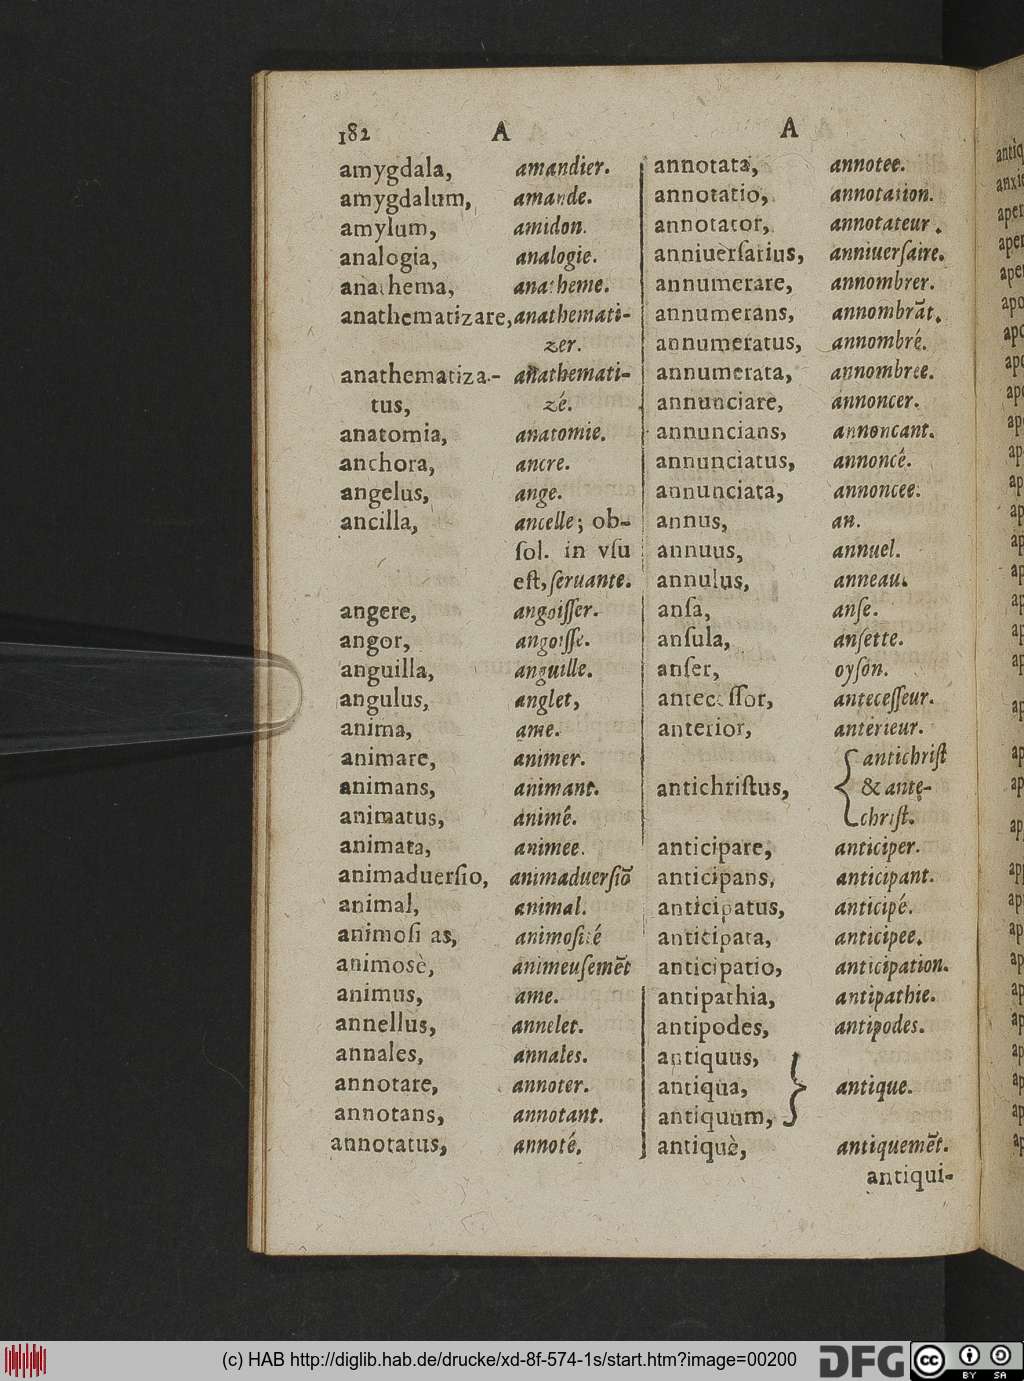 182 A A
amygdala, amandier.
amygdalum, amande.
amylum, amidon.
analogia, analogie.
anathema, anatheme.
anathematizare, anathemati-
zer.
anathematiza- anathemati-
tus, zé.
anatomia, anatomie.
anchora, ancre.
angelus, ange.
ancilla, ancelle; ob-
ſol. in vſu
eſt, ſeruante.
angerè, angoiſſer.
angor, angoiſſe.
anguilla, anguille.
angulus, anglet,
anima, ame.
animare, animer.
animans, animant.
animatus, animé.
animata, animee.
animaduerſio, animaduerſiō
animal, animal.
animoſi as, animoſité
animosè, animeuſemēt
animus, ame.
annellus, annelet.
annales, annales.
annotare, annoter.
annotans, annotant.
annotatus, annoté.
annotata, annotee.
annotatio, annotation.
annotator, annotateur.
anniuerſarius, anniuerſaire.
annumerare, annombrer.
annumerans, annombrāt.
annumeratus, annombré.
annumerata, annombree.
annunciare, annoncer.
annuncians, annoncant.
annunciatus, annoncé.
annunciata, annoncee.
annus, an.
annuus, annuel.
annulus, anneau.
anſa, anſe.
anſula, anſette.
anſer, oyſon.
anteceſſor, anteceſſeur.
anterior, anterieur.
antichriſt
antichriſtus, & ante-
chriſt.
anticipare, anticiper.
anticipans, anticipant.
anticipatus, anticipé.
anticipata, anticipee.
anticipatio, anticipation.
antipathia, antipathie.
antipodes, antipodes.
antiquus,
antiqua, antique.
antiquum,
antiquè, antiquemēt.
antiqui-
(c) HAB http://diglib.hab.de/drucke/xd-8f-574-1s/start.htm?image=00200
DFG
cc BY SA